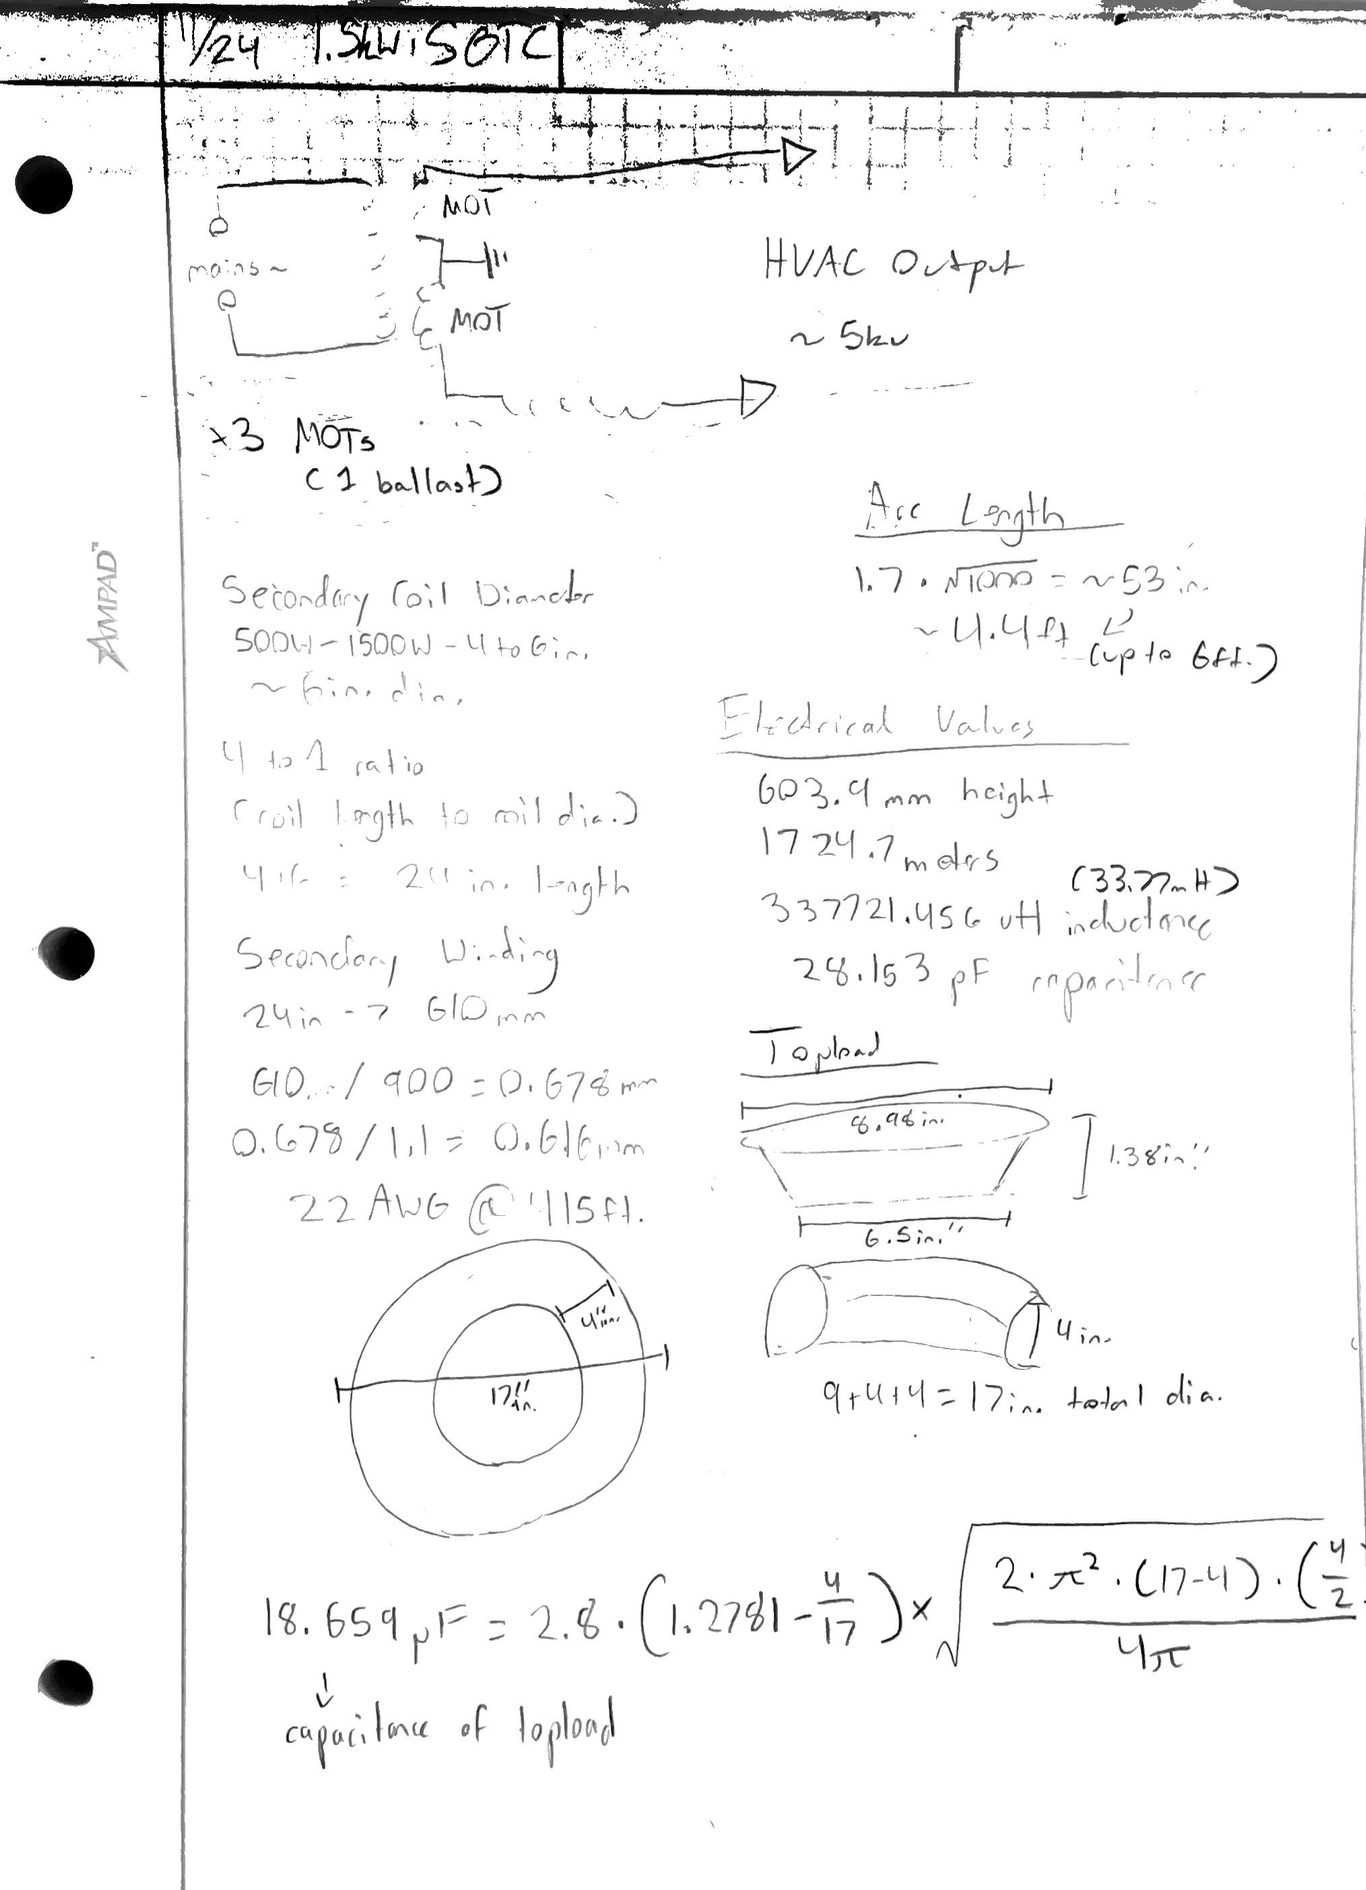 11/24 1.5kW SGTC
MOT
mains~
MOT
HVAC Output
~ 5kv
+3 MOTs
(1 ballast)
Arc Length
1.7 · √1000 = ~53 in.
~ 4.4ft
(up to 6ft.)
Secondary Coil Diameter
500W - 1500W - 4 to 6 in.
~ 6in. dia.
4 to 1 ratio
(coil length to coil dia.)
4·6 = 24 in. length
Secondary Winding
24in -> 610mm
610 / 900 = 0.678mm
0.678 / 1.1 = 0.616mm
22 AWG @ 1115ft.
AMPAD™
Electrical Values
603.9 mm height
1724.7 meters
(33.77mH)
337721.456 uH inductance
28.153 pF capacitence
Topload
8.98in.
1.38in."
6.5in."
4in.
9+4+4=17in. total dia.
4"in.
17"in.
18.659 pF = 2.8 · (1.2781 - 4/17) × √ 2·π²·(17-4)·(4/2 / 4π
capacitance of topload